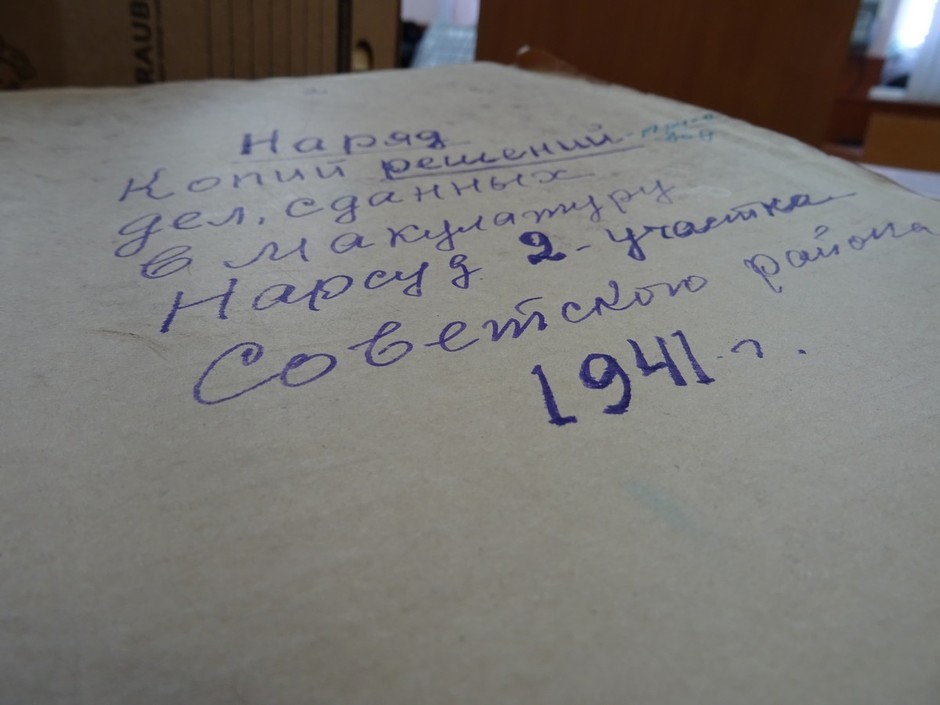 RAUB
Наряд
Копий решений
дел, сданных
в макулатуру
Нарсуд 2-участка
Советского района
1941 г.